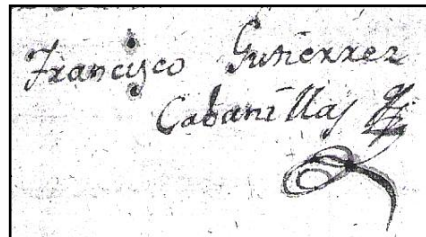 Francisco Gutierrez
Cabanillas